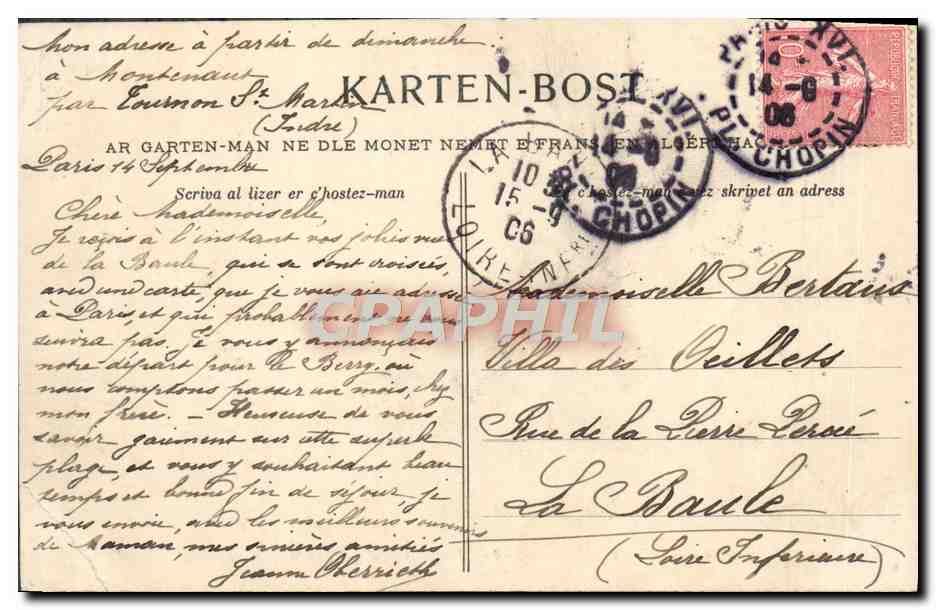 Mon adresse à partir de dimanche :
à Montenaut
par Tournon St Martin
(Indre)
KARTEN-BOST
AR GARTEN-MAN NE DLE MONET NEMET E FRANS, EN ALGERI HA
Paris 14 Septembre
Scriva al lizer er c'hostez-man
c'hostez-man skrivet an adress
Chère Mademoiselle,
Je reçois à l'instant vos jolies vues
de la Baule, qui se sont croisées,
avec une carte, que je vous ai adressée
à Paris, et qui probablement ne vous
suivra pas. Je vous y annonçais
notre départ pour le Berry, où
nous comptons passer un mois, chez
mon frère. — Heureuse de vous
savoir gaiement sur cette superbe
plage, et vous y souhaitant beau
temps et bonne fin de séjour, je
vous envoie, avec les meilleurs souvenirs
de Maman, mes sincères amitiés
Jeanne Oberrieth
Mademoiselle Bertaux
Villa des Oeillets
Rue de la Pierre Percée
La Baule
(Loire Inférieure)
PARIS XVI
14 - 9
06
PL. CHOPIN
XVI
14
06
CHOPIN
LA BAULE
10
15 - 9
06
LOIRE INFRE
CPAPHIL